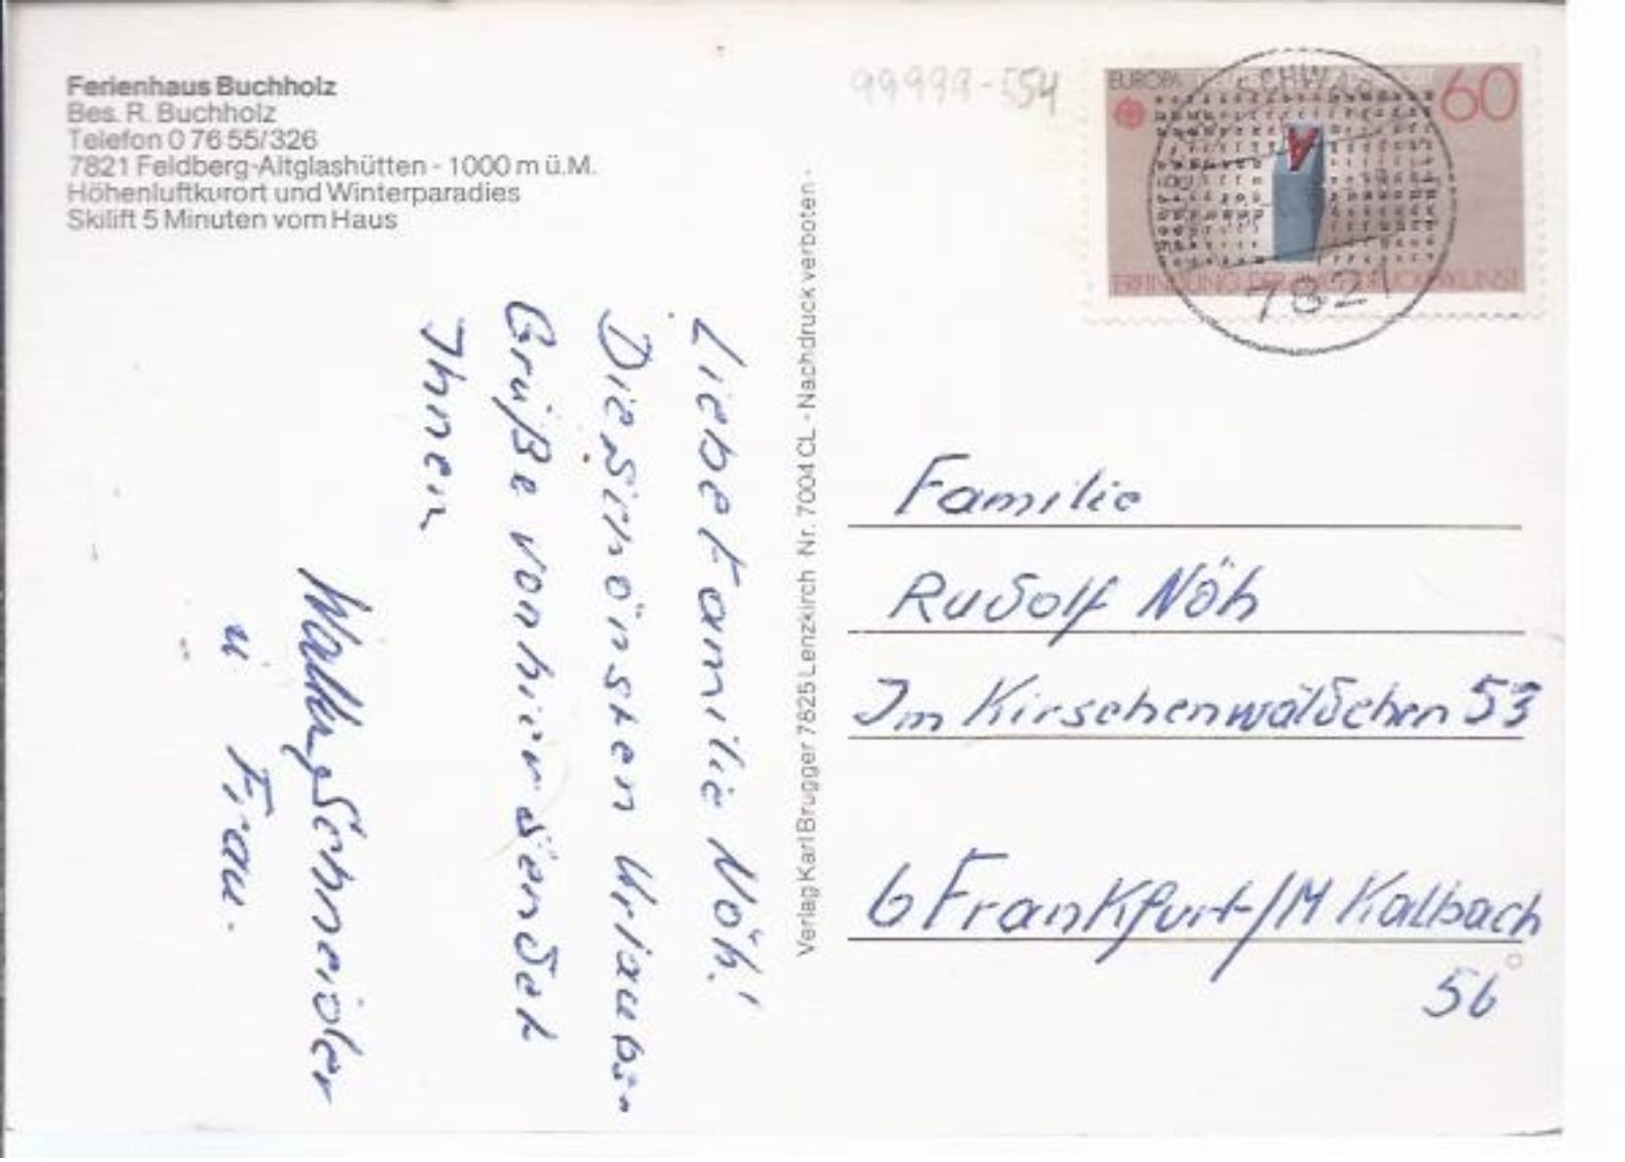 Ferienhaus Buchholz
Bes. R. Buchholz
Telefon 0 76 55/326
7821 Feldberg-Altglashütten - 1000 m ü.M.
Höhenluftkurort und Winterparadies
Skilift 5 Minuten vom Haus
99999-554
EUROPA
60
7821
Liebe Familie Nöh!
Die schönsten Urlaubs-
Grüße von hier sendet
Ihnen
Schneider
u Frau.
Verlag Karl Brugger 7825 Lenzkirch Nr. 7004 CL - Nachdruck verboten -
Familie
Rudolf Nöh
Im Kirschenwäldchen 53
6 Frankfurt/M Kalbach
56